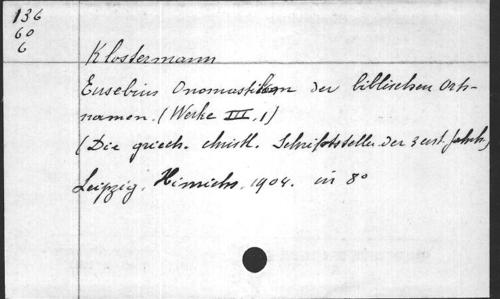 136
60
6
Klostermann
Eusebius Onomastikon der biblischen Orts-
namen. (Werke III, 1)
(Die griech. christl. Schriftsteller der 3 erst. Jahrh.)
Leipzig, Hinrichs, 1904. in 8°